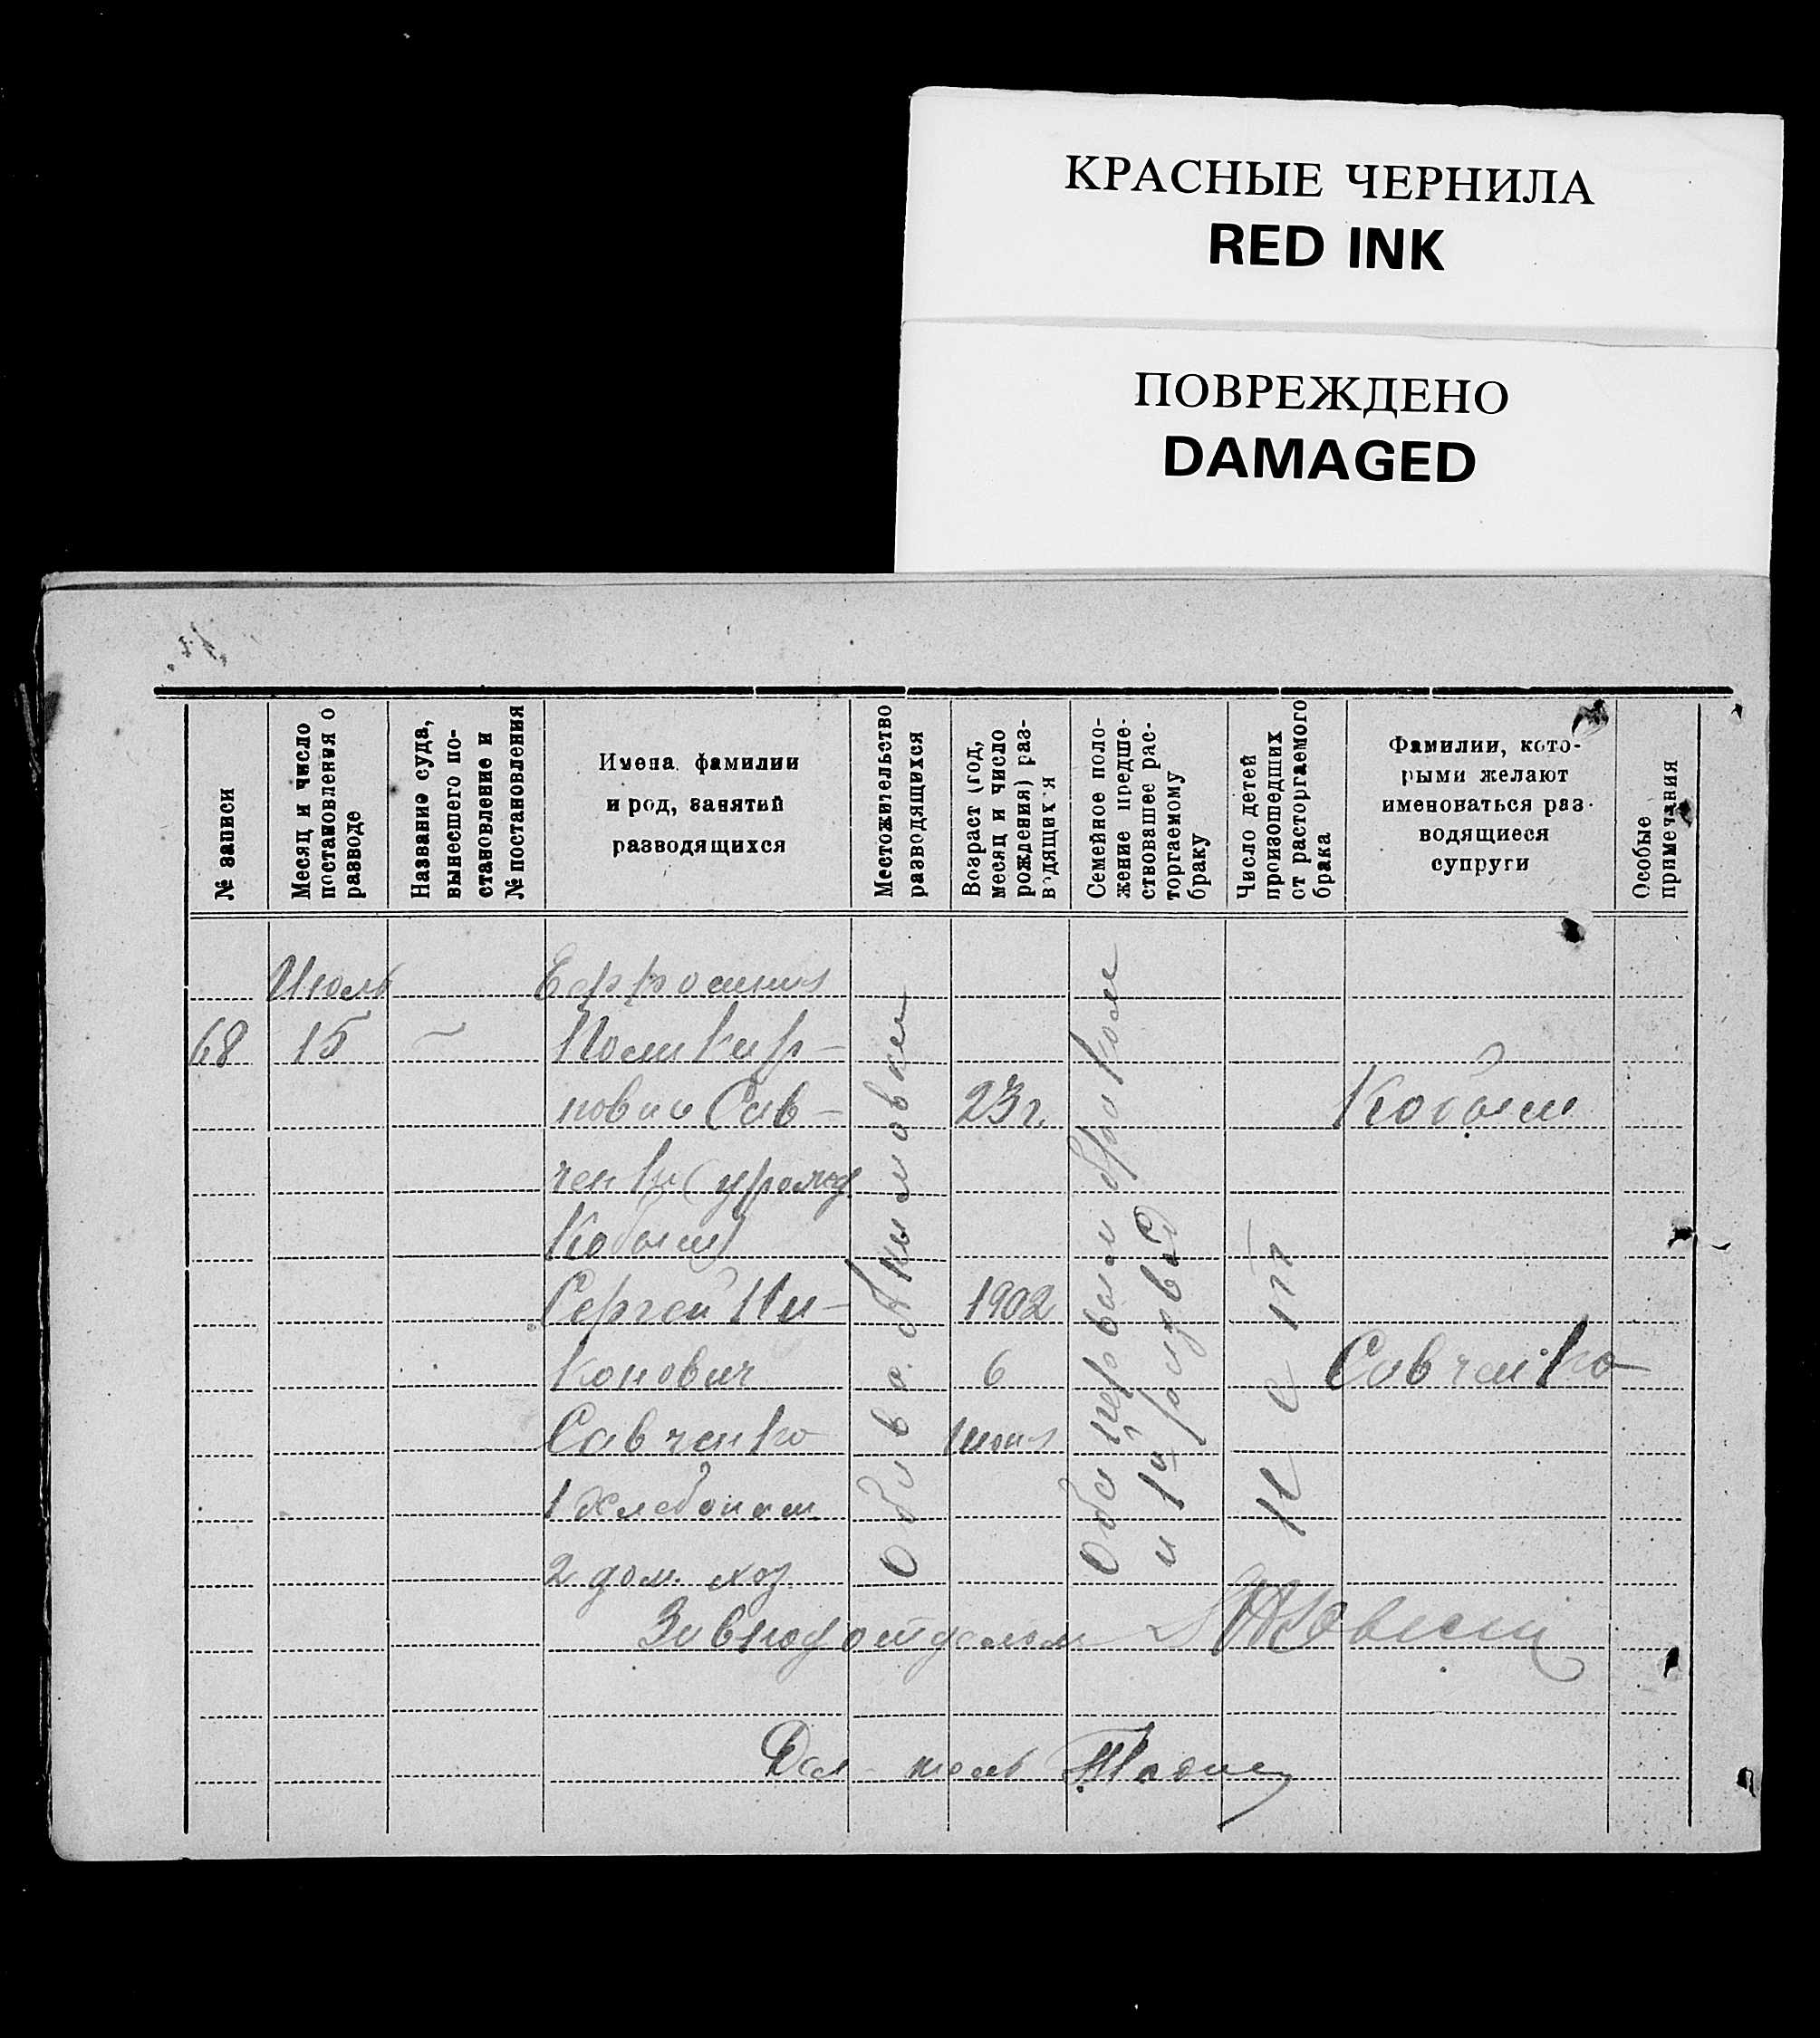 КРАСНЫЕ ЧЕРНИЛА
RED INK
ПОВРЕЖДЕНО
DAMAGED
№ записи
Месяц и число
постановления о
разводе
Название суда,
вынесшего по-
становление и
№ постановления
Имена, фамилии
и род, занятий
разводящихся
Местожительство
разводящихся
Возраст (год,
месяц и число
рождения) раз-
водящихся
Семейное поло-
жение предше-
ствовавшее рас-
торгаемому
браку
Число детей
произошедших
от расторгаемого
брака
Фамилии, кото-
рыми желают
именоваться раз-
водящиеся
супруги
Особые
примечания
Июль
68
15
Ефросиния
Поликар-
повна Сав-
ченко (урожд
Кобыш)
Сергей Ни-
конович
Савченко
1 Хлебопаш.
2 дом. хоз.
Оба в а. Акимовке
23 г.
1902
6
Июня
Оба первым браком
и 1й развод
нет
Кобыш
Савченко
Завподотделом
Дел-тель